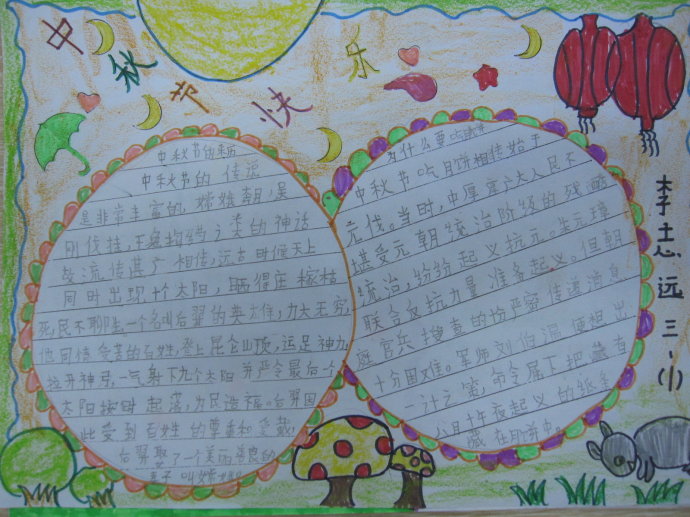 中秋节快乐
中秋节的来历
中秋节的传说
是非常丰富的,嫦娥奔月,吴
刚伐桂,玉兔捣药之类的神话
故流传甚广。相传,远古时候天上
同时出现十个太阳,晒得庄稼枯
死,民不聊生,一个名叫后羿的英雄,力大无穷,
他同情受苦的百姓,登上昆仑山顶,运足神力
拉开神弓,一气身下九个太阳并严令最后一个
太阳按时起落,为民造福。后羿因
此受到百姓的尊重和爱戴,
后羿娶了一个美丽善良的
妻子叫嫦娥
为什么要吃月饼
中秋节吃月饼相传始于
元代。当时,中原广大人民不
堪受元朝统治阶级的残酷
统治,纷纷起义抗元。朱元璋
联合反抗力量准备起义。但朝
庭官兵搜查的份严密传递消息
十分困难。军师刘伯温便想出
一计之策,命令属下把藏有
八月十五夜起义的纸条
藏在
李志远
三(1)